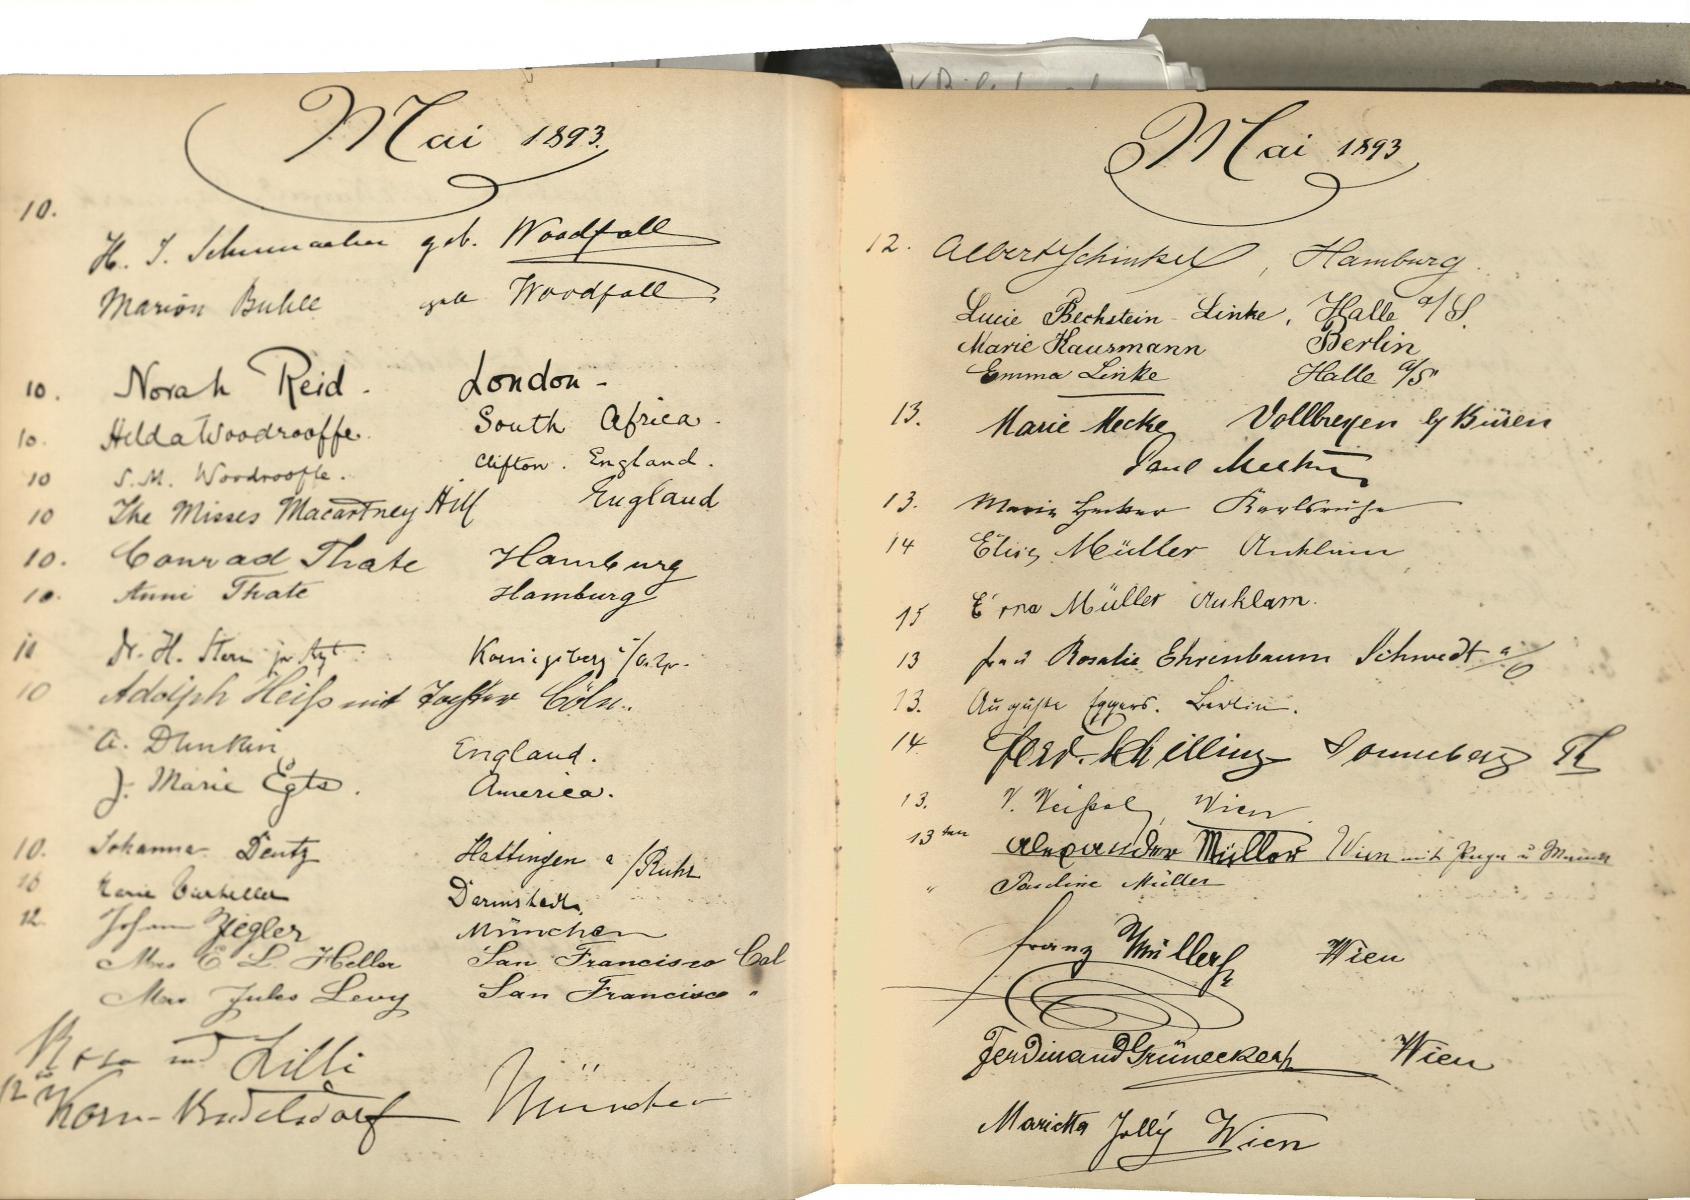 Mai 1893.
10.
H. J. Schumacher geb. Woodfall
Marion Buhle geb Woodfall
10. Norah Reid. London -
10. Hilda Woodrooffe. South Africa.
10 S. M. Woodrooffe. Clifton. England.
10 The Misses Macartney Hill England
10. Conrad Thate Hamburg
10. Anni Thate Hamburg
11 Dr. H. Stern Koenigsberg
10 Adolph Heiß mit Tochter Cöln.
A. Dunkin England.
J. Marie Egts. America.
10. Johanna Deutz Hattingen a/Ruhr
10 Darmstadt.
12. Johann Ziegler München
Mrs E. L. Heller San Francisco Cal
Mrs Jules Levy San Francisco "
Rosa und Lilli
12 Korn- München
Mai 1893
12. Albert Schinkel, Hamburg.
Lucie Bechstein-Linke, Halle a/S.
Marie Hausmann Berlin
Emma Linke Halle a/S
13. Marie Mecke Büren
Paul Mecke
13. Marie Hecker Karlsruhe
14 Elise Müller Anklam
15 Erna Müller Anklam.
13 Frau Rosalie Ehrenbaum Schwedt a/O
13. Auguste Eggers. Berlin.
14 Ferd. Schilling Sonneberg Th
13. Wien
13ten Alexander Müller Wien mit
" Pauline Müller
Franz Müller Wien
Ferdinand Grüneckert Wien
Marietta Jolly Wien